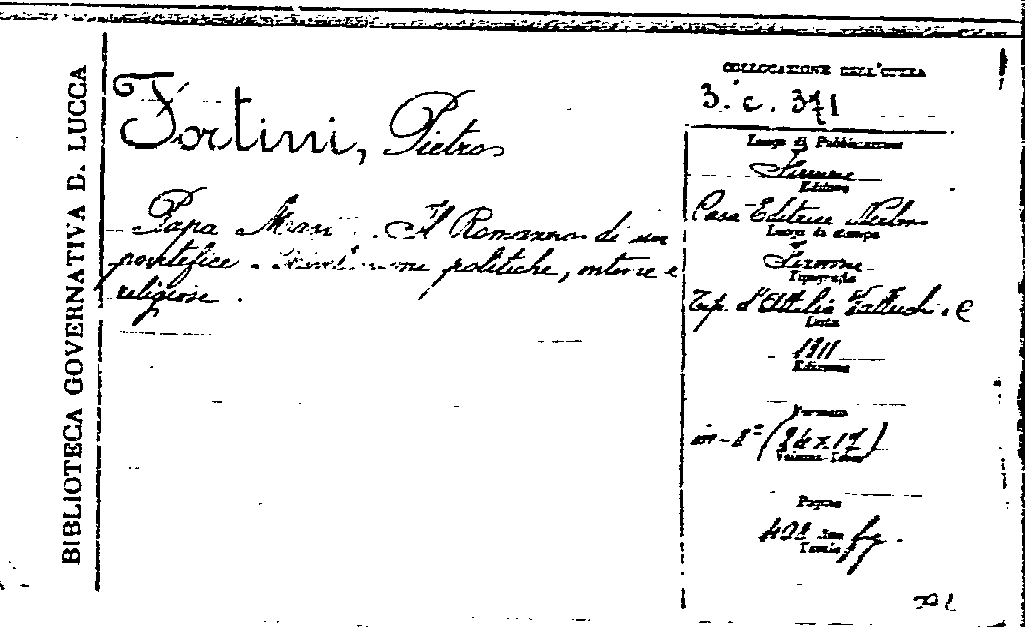 BIBLIOTECA GOVERNATIVA D. LUCCA
Fortini, Pietro
Papa Mari. Il Romanzo di un
pontefice. politiche, intime e
religiose.
COLLOCAZIONE DELL'OPERA
3. c. 371
Luogo di Pubblicazione
Firenze
Editore
Casa Editrice Nerbini
Luogo di stampa
Firenze
Tipografia
Tip. d'Attilio
Data
1911
Edizione
Formato
in-8° (24x17)
Volume-Tomo
Pagine
fig.
Tavole